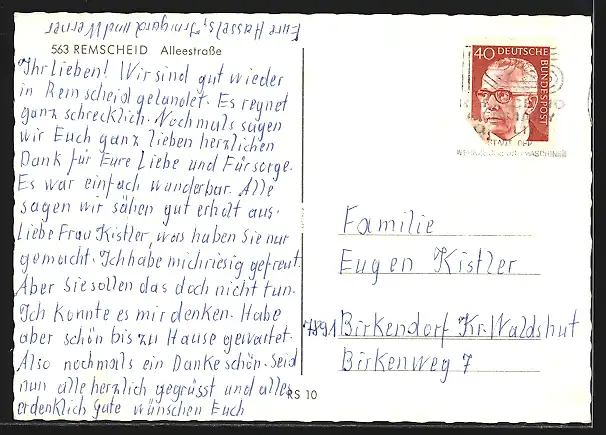 563 REMSCHEID Alleestraße
Ihr Lieben! Wir sind gut wieder
in Remscheid gelandet. Es regnet
ganz schrecklich. Nochmals sagen
wir Euch ganz lieben herzlichen
Dank für Eure Liebe und Fürsorge.
Es war einfach wunderbar. Alle
sagen wir sähen gut erholt aus.
Liebe Frau Kistler, was haben Sie nur
gemacht. Ich habe mich riesig gefreut.
Aber Sie sollen das doch nicht tun.
Ich konnte es mir denken. Habe
aber schön bis zu Hause gewartet.
Also nochmals ein Dankeschön. Seid
nun alle herzlich gegrüsst und alles
erdenklich Gute wünschen Euch
Eure Hassels, Irmgard und Werner
RS 10
40 DEUTSCHE
BUNDESPOST
Familie
Eugen Kistler
7891 Birkendorf Kr. Waldshut
Birkenweg 7